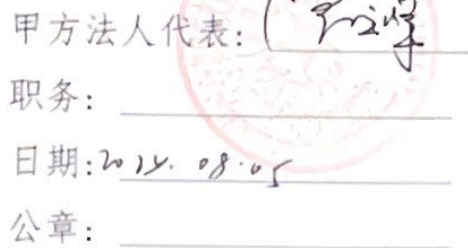 甲方法人代表:
职务:
日期:2024.08.05
公章: